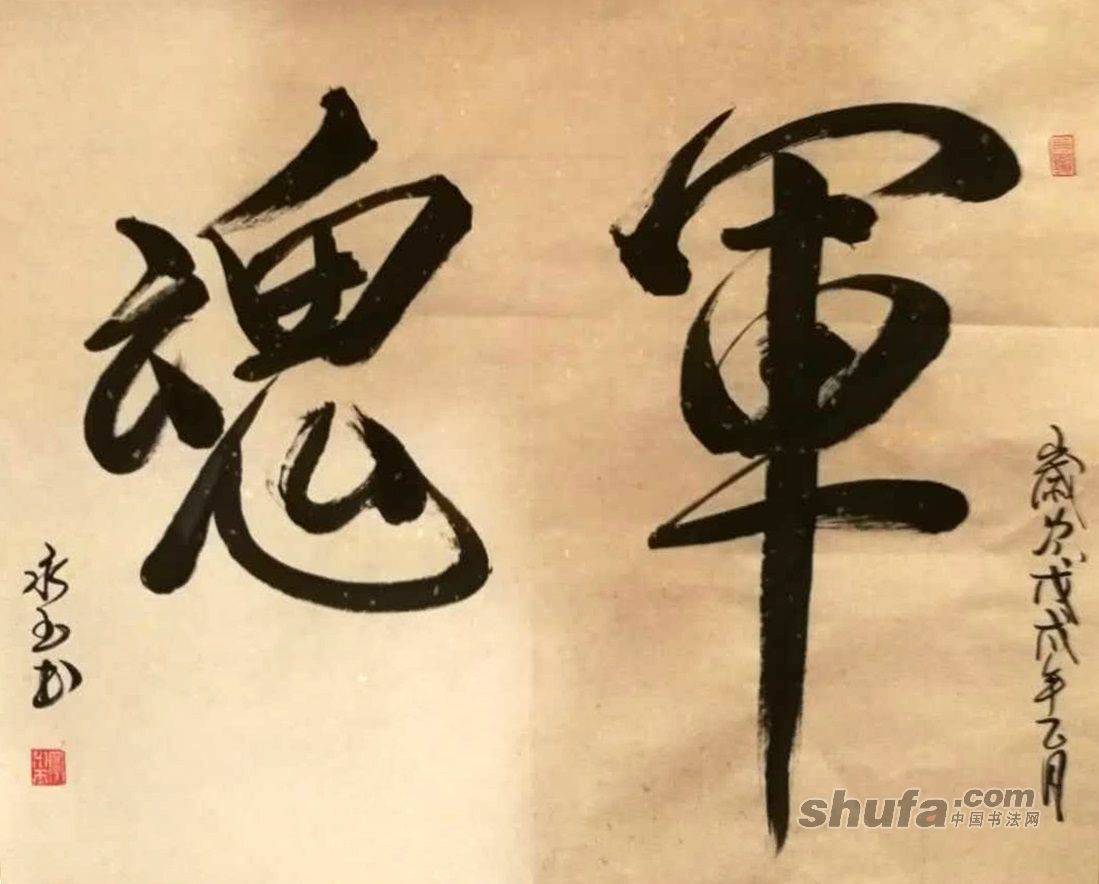 軍魂
歲次戊戌年乙月
永玉书
shufa.com
中国书法网